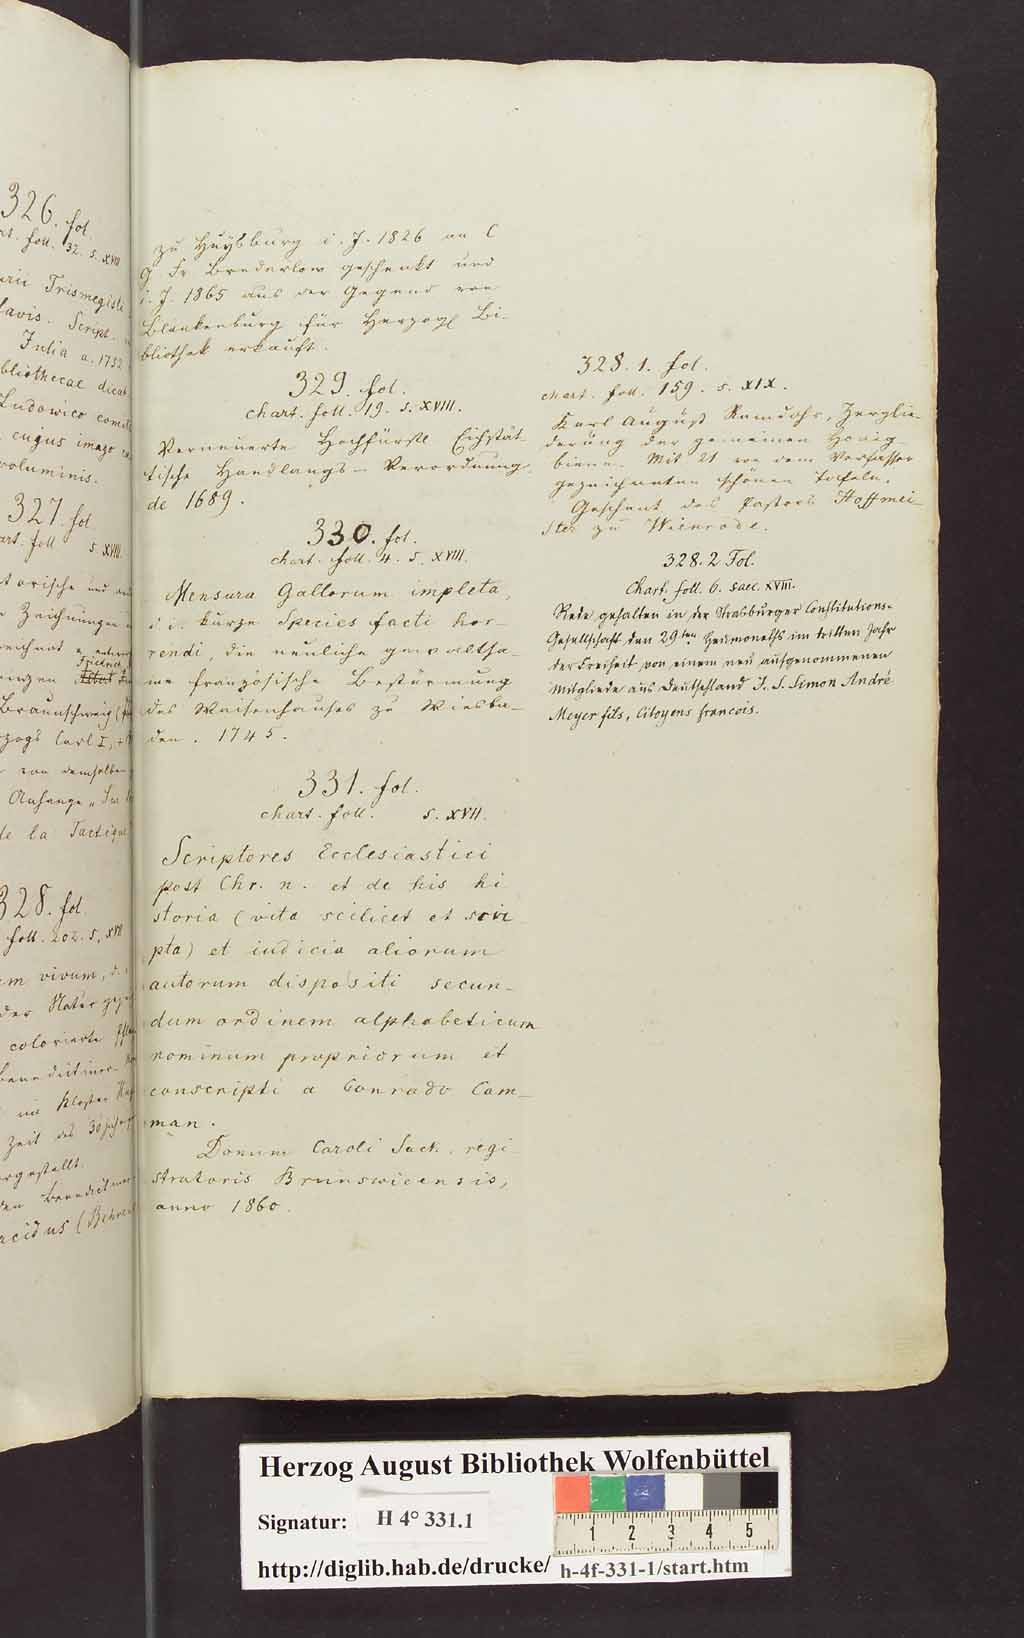 326. fol.
foll. 32. s. XVII
Trismegisti
Script.
Julia a. 1752
bliothecae dicat
Ludovico comit
cujus imago
voluminis.
327. fol.
foll. s. XVIII.
torische und
Zeichnungen
Friedrich
Braunschweig
zogs Carl I,
von demselben
Anhange
de la Tactique
328. fol.
foll. 202. s. XVII
m vivum, d. i.
der Natur
colorierte
Benedictiner
im Kloster
Zeit des 30jähr
rgestellt.
den Benedictiner
acidus (Behrens
zu Huysburg i. J. 1826 an C
G Fr Bruderlow geschenkt und
i. J. 1865 aus der Gegend von
Blankenburg für Herzogl Bi-
bliothek erkauft.
329. fol.
chart. foll. 19. s. XVIII.
Verneuerte Hochfürstl Eichstät
tische Handlungs- Verordnung
de 1689.
330. fol.
chart. foll. 4. s. XVIII.
Mensura Gallorum impleta,
d. i. kurze Species facti hor-
rendi, die neuliche gewaltha-
me französische Bestürmung
des Waisenhauses zu Wiesba-
den. 1745.
331. fol.
chart. foll. s. XVII.
Scriptores Ecclesiastici
post Chr. n. et de his hi
storia (vita scilicet et scri
pta) et iudicia aliorum
autorum dispositi secun-
dum ordinem alphabeticum
nominum propriorum et
conscripti a Conrado Cam-
man.
Donum Caroli Sack, regi
stratoris Brunswicensis,
anno 1860.
328. 1. fol.
chart. foll. 159. s. XIX.
Karl August Ramdohr, Zerglie-
derung der gemeinen Honig-
biene. Mit 21 von dem Verfasser
gezeichneten schönen Tafeln.
Geschenk des Pastors Hoffmei-
ster zu Wienrode.
328. 2 Fol.
Chart. foll. 6. saec. XVIII.
Rede gehalten in der Strasburger Constitutions-
Gesellschaft den 29ten Heumonaths im tritten Jahr
der Freiheit von einem neu aufgenommenen
Mitgliede aus Deutschland J. S. Simon André
Meyer fils, Citoyens francois.
Herzog August Bibliothek Wolfenbüttel
Signatur: H 4° 331.1
1 2 3 4 5
http://diglib.hab.de/drucke/ h-4f-331-1/start.htm